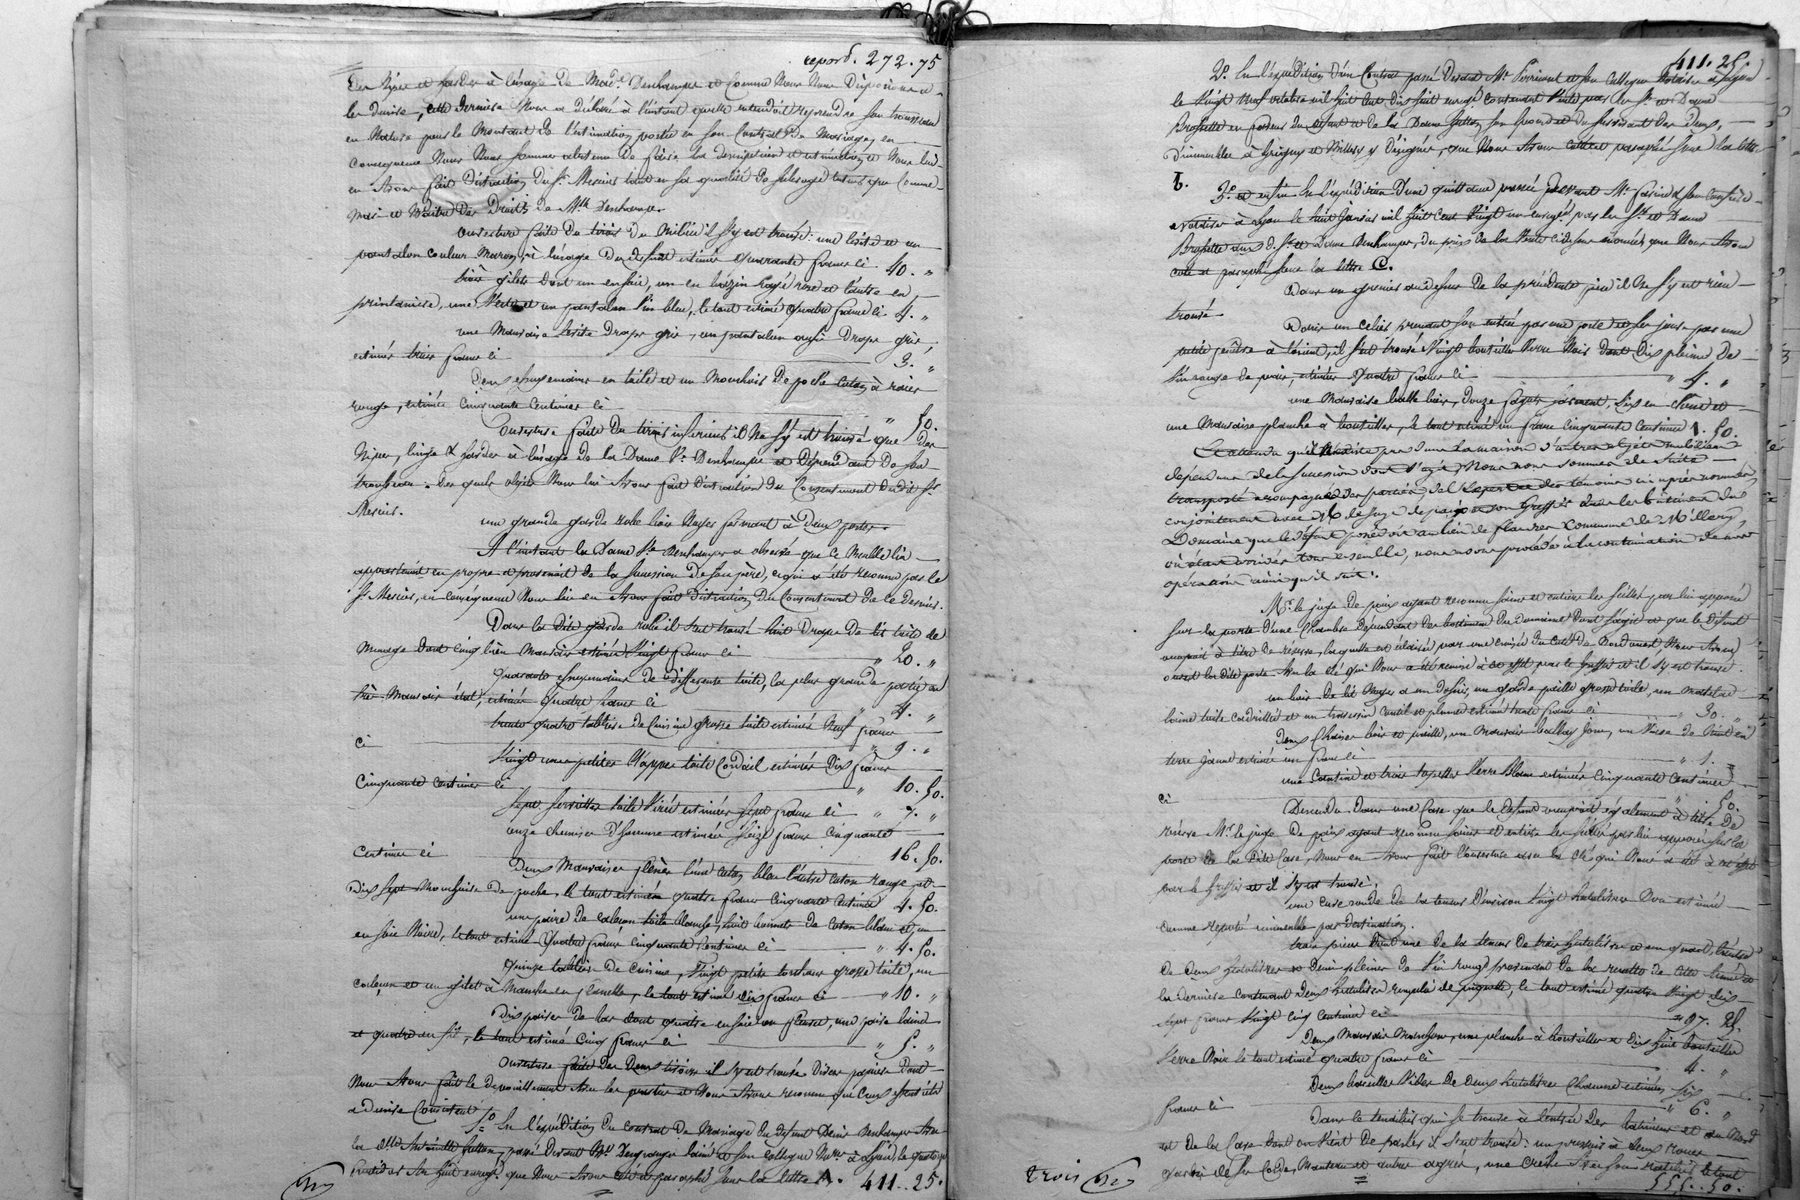 report. 272.75
Des Nipes et hardes à l'usage de Mad.e Deschamps et comme Nous Nous Disposions à
les decrire, cette Derniere Nous a déclaré à l'instant quelle entendoit reprendre son trousseau
en Nature pour le Montant de l'estimation portée en son Contrat de Mariage, en
consequence Nous Nous sommes abstenu De faire la description et estimation et Nous lui
en Avons fait Distraction Du S.r Mercier tant en sa qualité De subrogé tuteur que Comme
mari et Maitre Des Droits de M.lle Deschamps.
Ouverture faite Du tiroir Du Milieu il s'y est trouvé: une lévite et un
pantalon couleur Maron à l'usage Du défunt estimés quarante francs ci 40. "
trois gilets dont un en soie, un en bazin rayé rose et l'autre en
printaniere, une Veste et un pantalon Vin bleu, le tout estimé quatre francs ci 4. "
une Mauvaise levite Draps gris, un pantalon aussi Draps gris
estimés trois francs ci 3. "
Deux essuyemains en toile et un Mouchoir De poche coton à raies
rouges, estimés Cinquante Centimes ci " 50.
Ouverture faite Du tiroir inferieur il Ne s'y est trouvé que Des
Nipes, linges & hardes à l'usage de la Dame V.e Deschamps et Dépendant De son
trousseau. Des quels objets Nous lui Avons fait Distraction Du Consentement Dudit S.r
Mercier.
une grande garde robe bois Noyer fermant à Deux portes.
A l'instant la Dame V.e Deschamps a observé que ce Meuble lui
appartenait en propre et provenait De la succession De son père, ce qui a été reconnu par le
S.r Mercier, en consequence Nous lui en Avons fait Distraction Du Consentement De ce Dernier.
Dans la Dite garde robe il s'est trouvé huit Draps De lit toile de
Menage Dont cinq bien Mauvais estimés Vingt francs ci " 20. "
quarante essuyemains de differente toile, la plus grande partie en
très Mauvais état, estimés quatre francs ci " 4. "
trente quatre tabliers De Cuisine grosse toile estimés Neuf francs
ci " 9. "
Vingt une petites Nappes toile Cordail estimées Dix francs
Cinquante Centimes ci " 10. 50.
Sept serviettes toile Virée estimées sept francs ci " 7. "
onze chemises D'homme estimées Seize francs cinquante
Centimes ci 16. 50.
Deux Mauvaises l'une coton bleu l'autre coton rouge et
Dix sept Mouchoirs De poche, le tout estimé quatre francs cinquante Centimes 4. 50.
une paire de caleçon toile blanche, huit bonnets de coton blanc et un
en soie Noire, le tout estimé quatre francs cinquante Centimes ci " 4. 50.
quinze tabliers De cuisine, Vingt petits torchons grosse toile, un
caleçon et un gilet à Manches en flanelle, le tout estimé dix francs ci " 10. "
Dix paires De bas dont quatre en soie ou fleuret, une paire laine
et quatre en fil, le tout estimé Cinq francs ci " 5. "
Ouverture faite Des Deux tiroirs il s'y est trouvé Divers papiers Dont
Nous Avons fait le dépouillement Avec les parties et Nous Avons reconnu que Ceux essentiels
à Décrire Consistent
1.o En l'expédition Du contrat de Mariage Du défunt Denis Deschamps Avec
la D.lle Antoinette passé Devant M.e Desgranges l'ainé et son collegue N.res à Lyon, le quatorze
An huit enregé que Nous Avons coté et paraphé sous la lettre A. 411.25.
411.25.
2.o En l'expédition D'un Contrat passé Devant M.e et son Collegue Notaires à Lyon
le Vingt Neuf octobre mil huit cent Dix huit enregé contenant Vente par les S.r et Dame
Brossette en faveur Du défunt et de la Dame son épouse et Du survivant Des Deux,
D'immeubles à Grigny et Millery y désignés, que Nous Avons coté et paraphé sous la lettre
B.
3.o et enfin En l'expédition D'une quittance passée pardevant M.e et son Confrère
Notaires à Lyon le huit Janvier mil huit cent Vingt un enregé, par les S.r et Dame
Brossette aux d. S.r et Dame Deschamps, Du prix de la Vente cidessus enoncée, que Nous Avons
coté et paraphé sous la lettre C.
Dans un grenier audessus de la précédente pièce il Ne s'y est rien
trouvé.
Dans un celier prenant son entrée par une porte et ses jours par une
petite fenêtre à l'orient, il s'est trouvé Vingt bouteilles Verre Noir Dont Dix pleines De
Vin rouge de pays, estimées quatre francs ci " 4. "
une Mauvaise balle bois, Douze fagots sarment, Six en Verne et
une Mauvaise planche à bouteilles, le tout estimé un franc cinquante Centimes 1. 50.
Et attendu qu'il n'existe pas dans la maison d'autres objets mobiliers
dépendans de la succession dont s'agit, Nous nous sommes de suite
transporté accompagné des parties, de l'expert et des temoins ci après nommés,
conjointement avec M.r le Juge de paix et son Greffier dans les bâtimens du
Domaine que le défunt possédoit au lieu de Flandres Commune de Millery,
où étant arrivés tous ensemble, nous avons procédé à la continuation de nos
opérations ainsi qu'il suit:
M.r le juge De paix ayant reconnu sains et entiers les scellés par lui apposés
sur la porte d'une Chambre dépendante Des batimens Du Domaine Dont s'agit et que le Défunt
occupait à titre De réserve, laquelle est éclairée par une croisée Du coté De Nord, nous Nous Avons
ouvert la Dite porte Avec la clé qui Nous a été remise à cet effet par le greffier et il s'y est trouvé
un bois De lit Noyer à un Dossier, un garde paille grosse toile, un matelas
laine toile cadrillée et un traversin coutil et plumes estimés trente francs ci 30. "
Deux Chaises bois et paille, un Mauvais ballay jonc, un Vase De Nuit en
terre jaune estimés un franc ci " 1. "
une Cantine et trois topettes Verre Blanc estimées Cinquante Centimes
ci " 50.
Descendu Dans une Cave que le Défunt occupait également à titre De
réserve M.r le juge De paix ayant reconnu sains et entiers les scellés par lui apposés sur la
porte de la Dite Cave, Nous en Avons fait l'ouverture avec la clé qui Nous a été à cet effet
par le Greffier et il s'y est trouvé:
une cuve ronde De la teneur D'environ Vingt hectolitres Non estimée
comme réputée immeuble par Destination.
trois pièces Dont une De la teneur de trois hectolitres et un quart, l'autre
De deux hectolitres et Demi pleines De Vin rouge provenant De la recolte De cette année et
la derniere Contenant Deux hectolitres remplie de piquette, le tout estimé quatre Vingt dix
sept francs Vingt cinq Centimes ci " 97. 25.
Deux Mauvais une planche à bouteilles et Dix huit bouteilles
Verre Noir le tout estimé quatre francs ci 4. "
Deux bareilles Vides De Deux hectolitres Chacune estimées Six
francs ci " 6. "
Dans le tenailler qui se trouve à l'entrée Des batimens et au Nord
et De la Cave Dont on Vient De parler il s'est trouvé: un pressoir à deux roues
garni de sa Corde, Manteau et autres agrès, une avec son le tout
555. 50.
trois